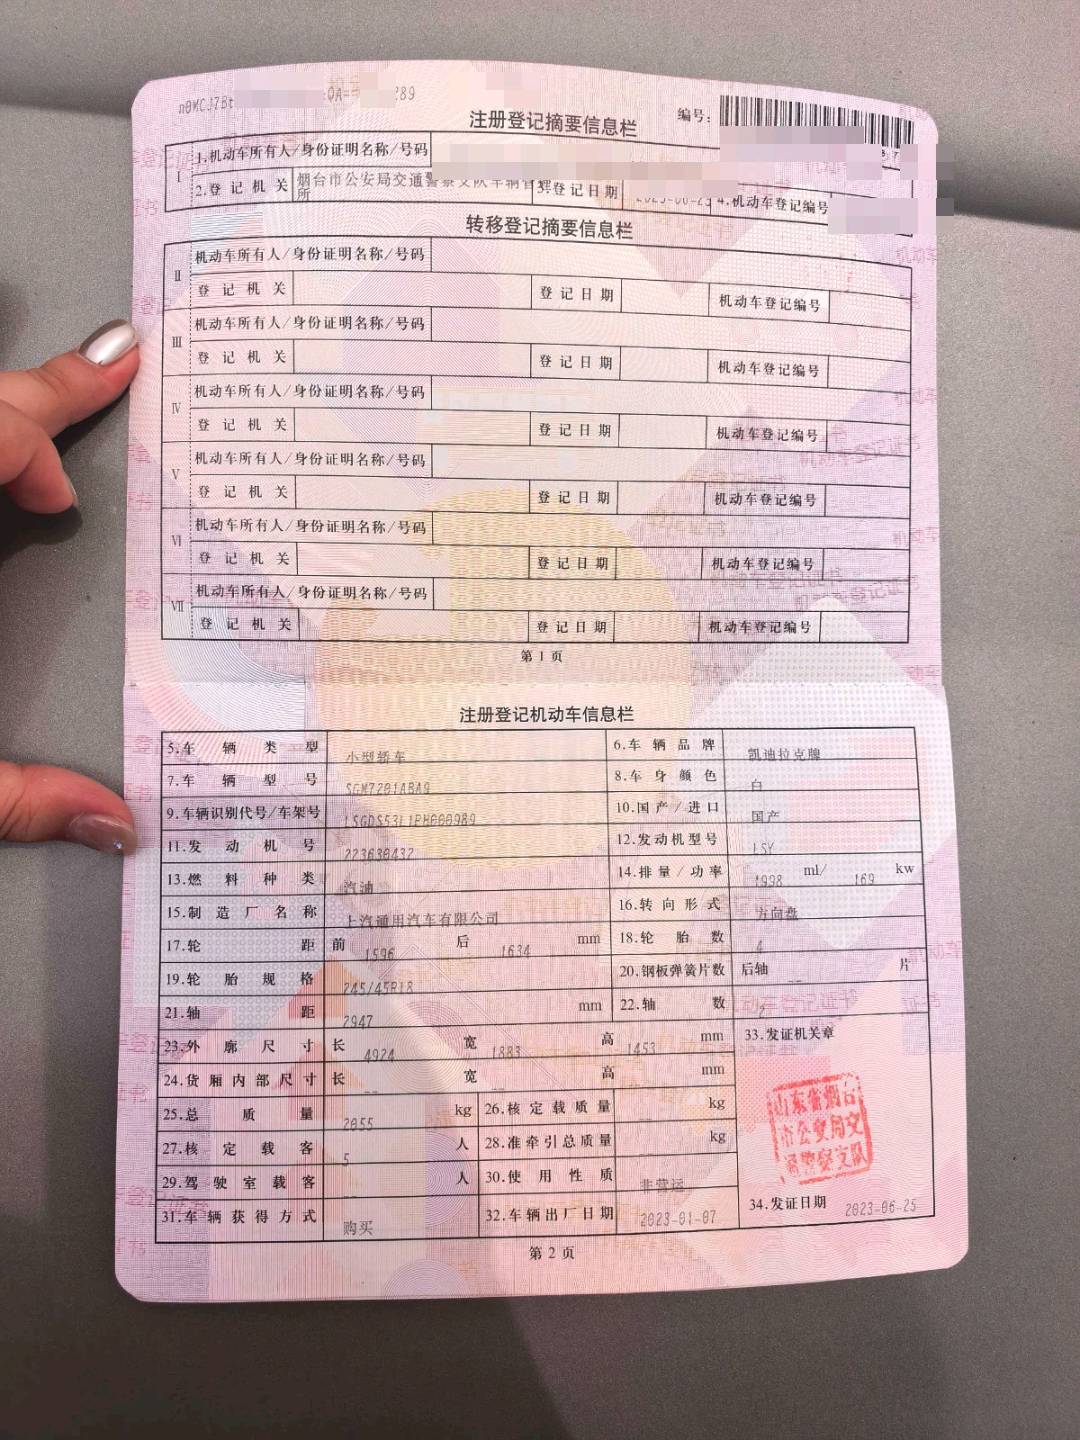 注册登记摘要信息栏
编号:
I 1.机动车所有人/身份证明名称/号码
2.登记机关 烟台市公安局交通警察支队车辆管理所 3.登记日期 2023-06-25 4.机动车登记编号
转移登记摘要信息栏
II 机动车所有人/身份证明名称/号码
登记机关 登记日期 机动车登记编号
III 机动车所有人/身份证明名称/号码
登记机关 登记日期 机动车登记编号
IV 机动车所有人/身份证明名称/号码
登记机关 登记日期 机动车登记编号
V 机动车所有人/身份证明名称/号码
登记机关 登记日期 机动车登记编号
VI 机动车所有人/身份证明名称/号码
登记机关 登记日期 机动车登记编号
VII 机动车所有人/身份证明名称/号码
登记机关 登记日期 机动车登记编号
第1页
注册登记机动车信息栏
5.车辆类型 小型轿车 6.车辆品牌 凯迪拉克牌
7.车辆型号 SGM7201ABA9 8.车身颜色 白
9.车辆识别代号/车架号 LSGDS53L1PH000989 10.国产/进口 国产
11.发动机号 223630432 12.发动机型号 LSY
13.燃料种类 汽油 14.排量/功率 1998 ml/ 169 kw
15.制造厂名称 上汽通用汽车有限公司 16.转向形式 方向盘
17.轮距 前 1596 后 1634 mm 18.轮胎数 4
19.轮胎规格 245/45R18 20.钢板弹簧片数 后轴 -- 片
21.轴距 2947 mm 22.轴数 2
23.外廓尺寸 长 4924 宽 1883 高 1453 mm 33.发证机关章
24.货厢内部尺寸 长 -- 宽 -- 高 -- mm
25.总质量 2055 kg 26.核定载质量 -- kg
27.核定载客 5 人 28.准牵引总质量 -- kg
29.驾驶室载客 -- 人 30.使用性质 非营运
31.车辆获得方式 购买 32.车辆出厂日期 2023-01-07 34.发证日期 2023-06-25
山东省烟台
市公安局交
通警察支队
第2页